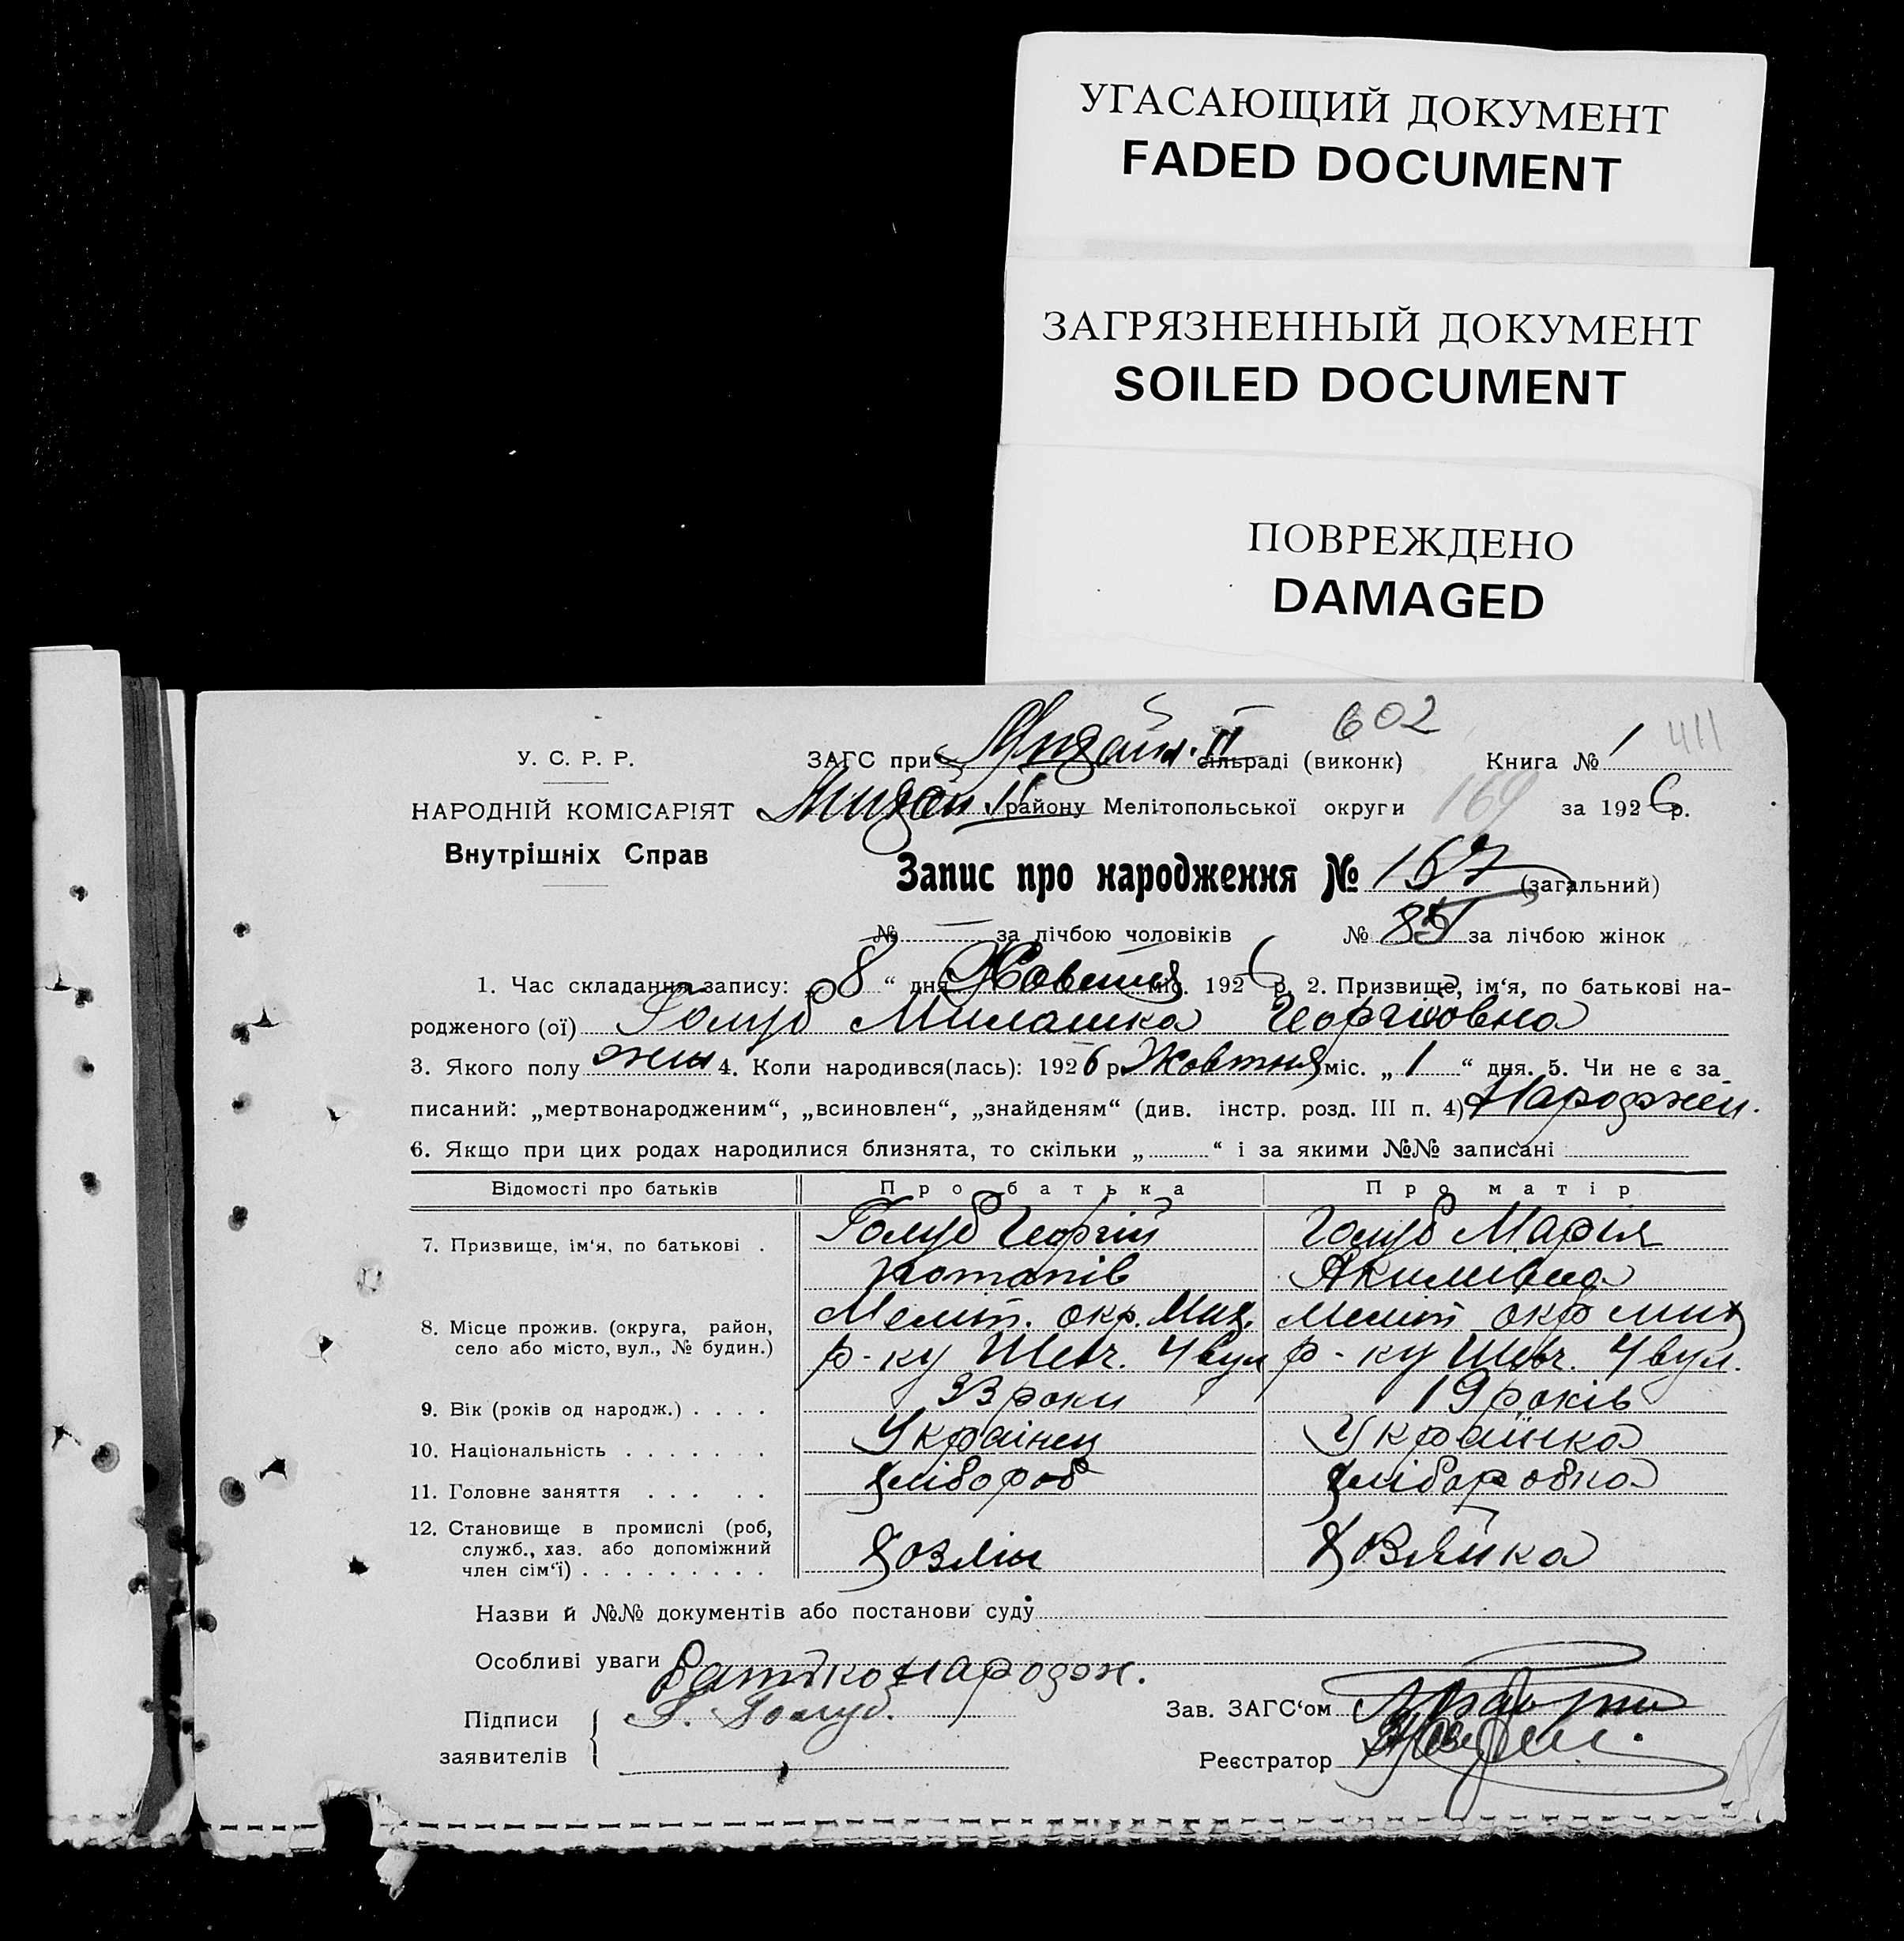 УГАСАЮЩИЙ ДОКУМЕНТ
FADED DOCUMENT
ЗАГРЯЗНЕННЫЙ ДОКУМЕНТ
SOILED DOCUMENT
ПОВРЕЖДЕНО
DAMAGED
602
411
У. С. Р. Р.
ЗАГС при Михайл. II сільраді (виконк) Книга № 1
НАРОДНІЙ КОМІСАРІЯТ
Внутрішніх Справ
Михай. II району Мелітопольської округи 169 за 1926 р.
Запис про народження № 167 (загальний)
№ — за лічбою чоловіків № 85 за лічбою жінок
1. Час складання запису: „8“ дня Жовтня міс. 1926 р. 2. Призвище, ім‘я, по батькові на-
родженого (ої) Голуб Милашка Георгіовна
3. Якого полу жін 4. Коли народився(лась): 1926 р. Жовтня міс. „1“ дня. 5. Чи не є за
писаний: „мертвонародженим“, „всиновлен“, „знайденям“ (див. інстр. розд. III п. 4) Народжен.
6. Якщо при цих родах народилися близнята, то скільки „ “ і за якими №№ записані
Відомості про батьків Про батька Про матір
7. Призвище, ім‘я, по батькові . Голуб Георгій Голуб Марія
Потапів Якимівна
8. Місце прожив. (округа, район, Меліт. окр. Мих. Меліт окр Мих
село або місто, вул., № будин.) р-ку Шевч. 4 вул р-ку Шевч. 4 вул.
9. Вік (років од народж.) . . . . 33 роки 19 років
10. Національність . . . . . . . Українец Українка
11. Головне заняття . . . . . хлібороб хліборобка
12. Становище в промислі (роб,
служб., хаз. або допоміжний
член сім‘ї) . . . . . . . . . хозяїн хозяйка
Назви й №№ документів або постанови суду
Особливі уваги батько народж.
Підписи
заявителів
Г. Голуб.
Зав. ЗАГС‘ом
Реєстратор